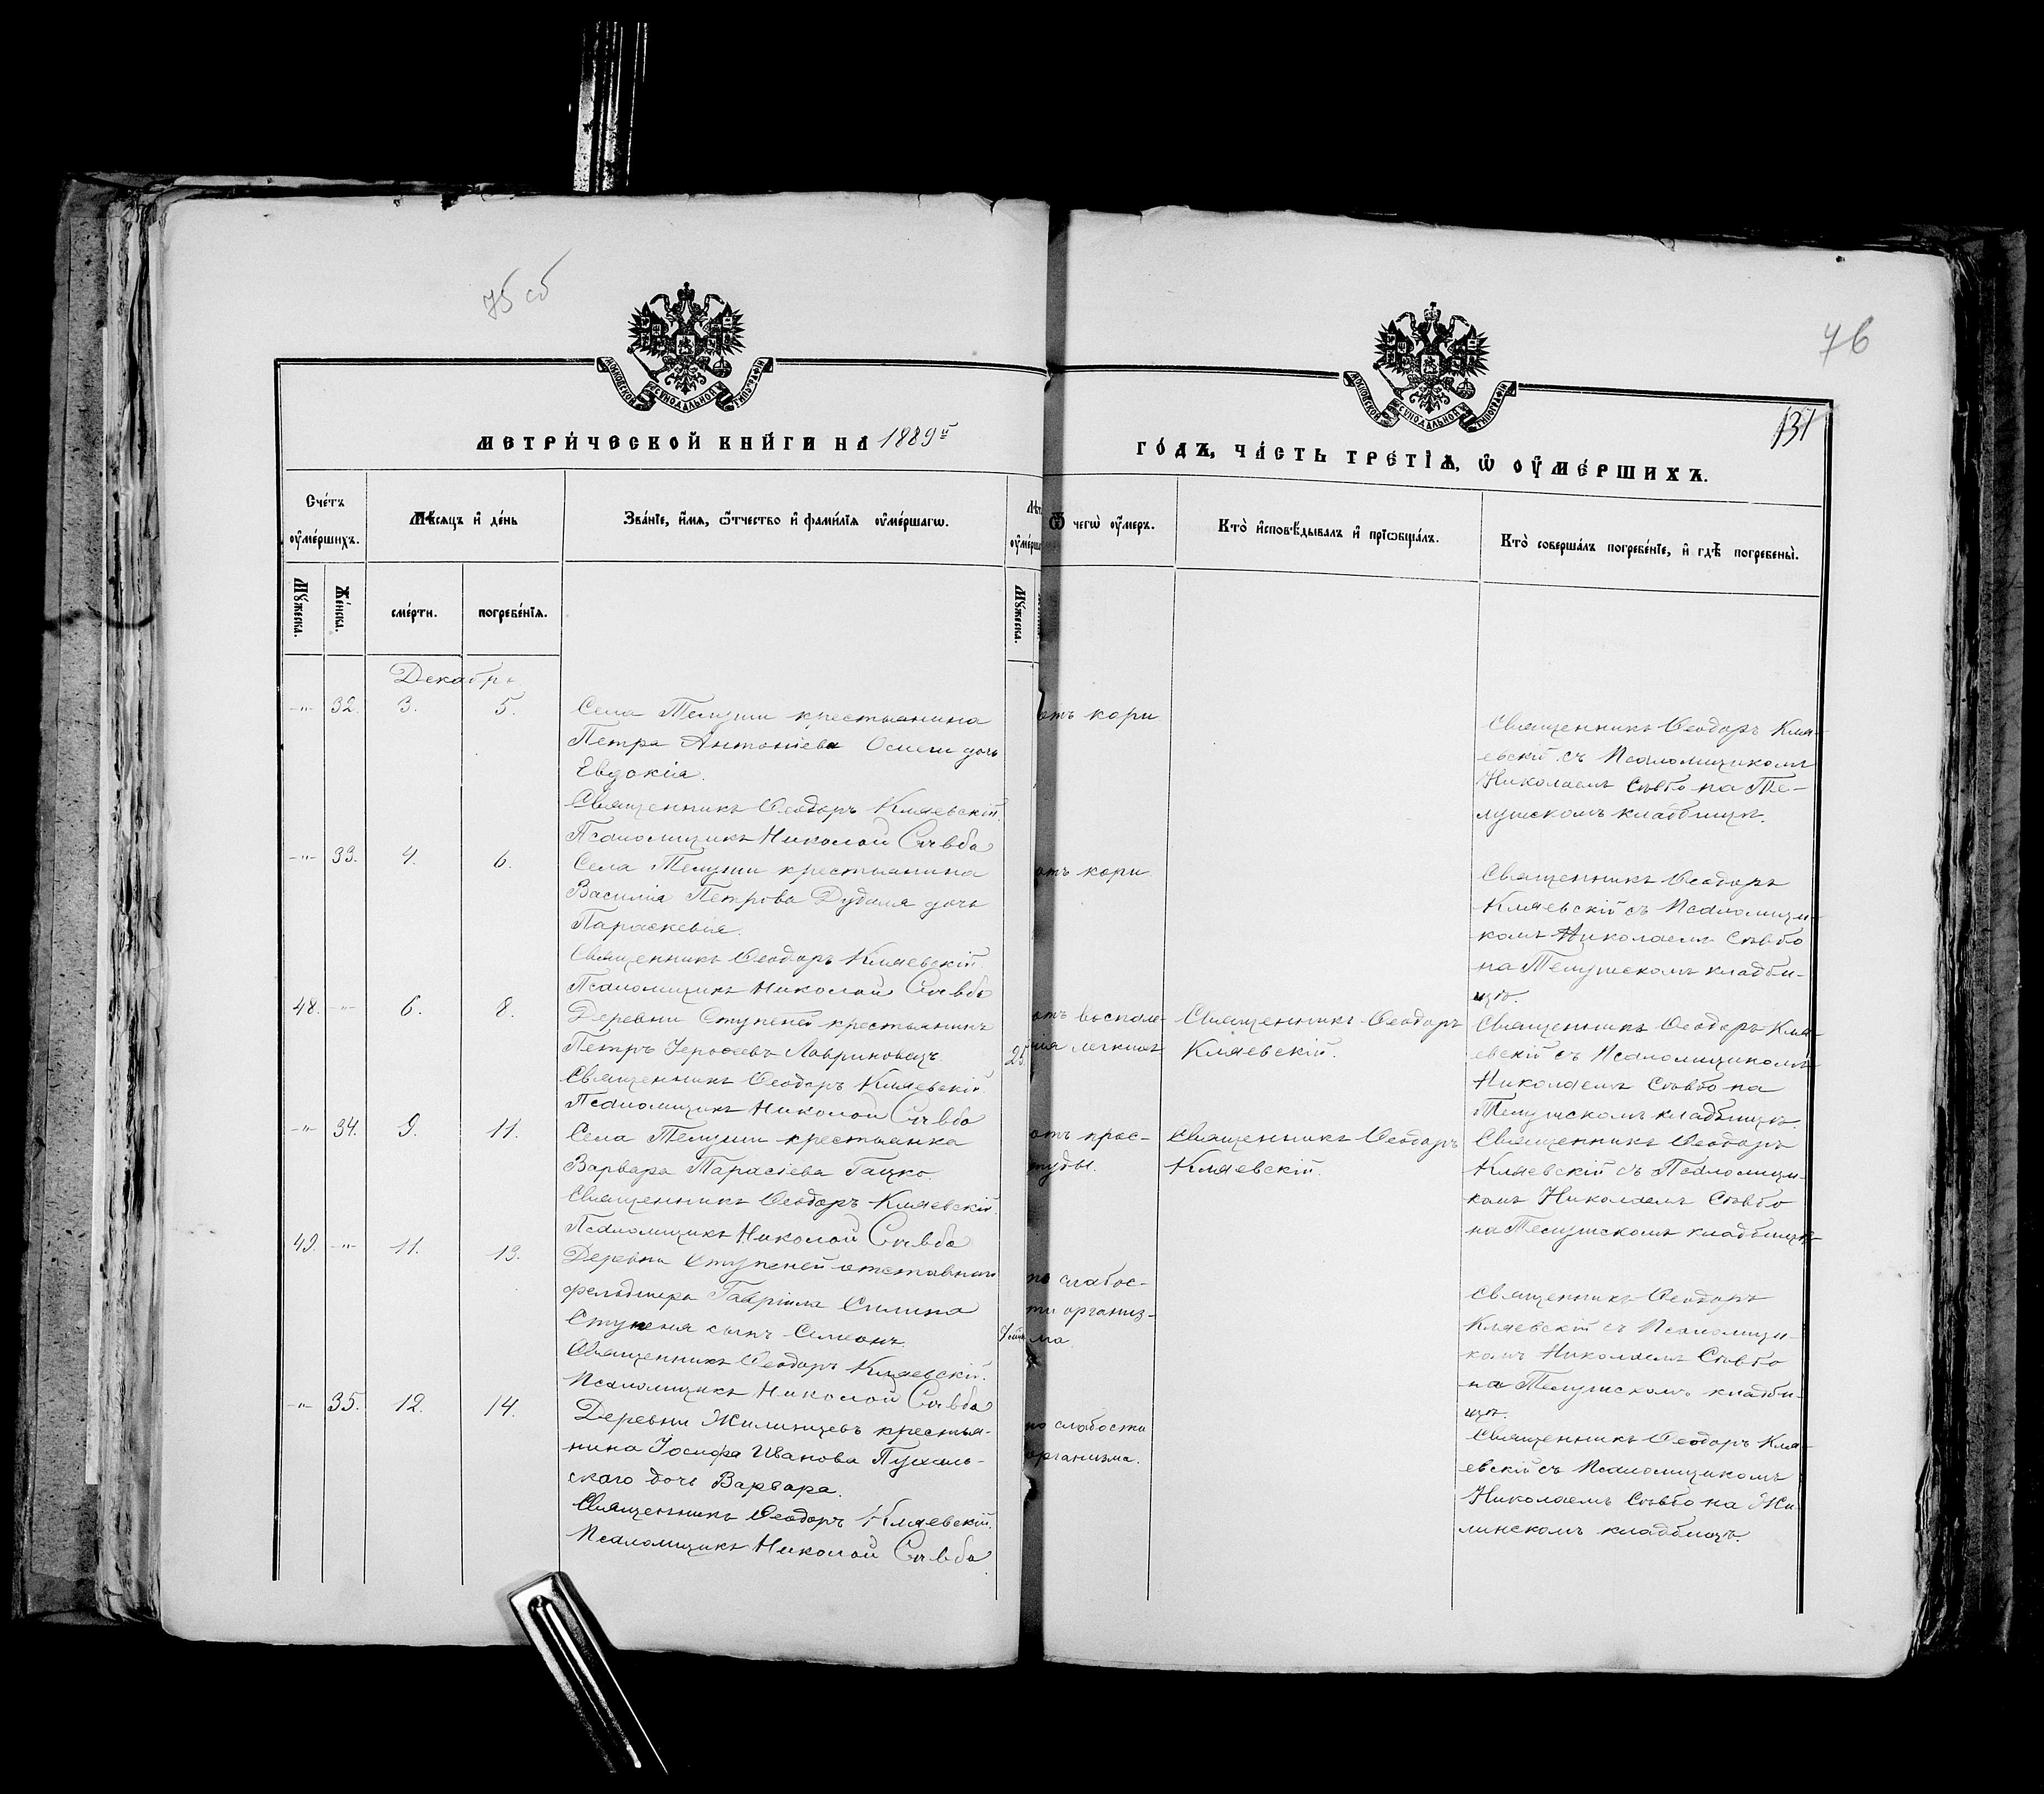 75 об
76
131
МОСКОВСКОЙ СѴНОДАЛЬНОЙ ТИПОГРАФІИ
МОСКОВСКОЙ СѴНОДАЛЬНОЙ ТИПОГРАФІИ
МЕТРИ́ЧЕСКОЙ КНИ́ГИ НА 1889й
ГО́ДЪ, ЧА́СТЬ ТРЕ́ТІѦ, Ѡ ОУ҆МЕ́РШИХЪ.
Сче́тъ оу҆ме́ршихъ.
Мѣ́сѧцъ и҆ де́нь
Зва́нїе, и҆́мѧ, ѻ҆́тчество и҆ фамі́лїѧ оу҆ме́ршагѡ.
Ѿ чегѡ̀ оу҆́меръ.
Кто̀ и҆сповѣ́дывалъ и҆ прїѡбща́лъ.
Кто̀ соверша́лъ погребе́нїе, и҆ гдѣ̀ погребены̀.
Мꙋ́жеска.
Же́нска.
сме́рти.
погребе́нїѧ.
Мꙋ́жеска.
Декабрь
-"- 32. 3. 5.
Села Телуши крестьянина
Петра Антоніева дочь
Евдокія.
Священникъ Ѳеодоръ Кляевскій.
Псаломщикъ Николай Савбо
отъ кори
Священникъ Ѳеодоръ Кля-
евскій съ Псаломщикомъ
Николаемъ Савбо на Те-
лушскомъ кладбищѣ.
-"- 33. 4. 6.
Села Телуши крестьянина
Василія Петрова Дубаля дочь
Параскевія.
Священникъ Ѳеодоръ Кляевскій
Псаломщикъ Николай Савбо
отъ кори
Священникъ Ѳеодоръ
Кляевскій съ Псаломщи-
комъ Николаемъ Савбо
на Телушскомъ кладби-
щѣ.
48. -"- 6. 8.
Деревни Ступеней крестьянинъ
Петръ Іероѳеевъ Лавриновецъ.
Священникъ Ѳеодоръ Кляевскій.
Псаломщикъ Николай Савбо
25
отъ воспале-
нія легкихъ
Священникъ Ѳеодоръ
Кляевскій.
Священникъ Ѳеодоръ Кля-
евскій съ Псаломщикомъ
Николаемъ Савбо на
Телушскомъ кладбищѣ.
-"- 34. 9. 11.
Села Телуши крестьянка
Варвара Тарасіева Гацко.
Священникъ Ѳеодоръ Кляевскій.
Псаломщикъ Николай Савбо
отъ прос-
туды.
Священникъ Ѳеодоръ
Кляевскій.
Священникъ Ѳеодоръ
Кляевскій съ Псаломщи-
комъ Николаемъ Савбо
на Телушскомъ кладбищѣ
49. -"- 11. 13.
Деревни Ступеней отставнаго
фельдшера Гавріила Силина
Ступеня сынъ Симеонъ.
Священникъ Ѳеодоръ Кляевскій.
Псаломщикъ Николай Савбо
по слабос-
ти организ-
ма
Священникъ Ѳеодоръ
Кляевскій съ Псаломщи-
комъ Николаемъ Савбо
на Телушскомъ кладби-
щѣ.
-"- 35. 12. 14.
Деревни Жилинцевъ крестья-
нина Іосифа Иванова Пухаль-
скаго дочь Варвара.
Священникъ Ѳеодоръ Кляевскій.
Псаломщикъ Николай Савбо
по слабости
организма.
Священникъ Ѳеодоръ Кля-
евскій съ Псаломщикомъ
Николаемъ Савбо на Жи-
линскомъ кладбищѣ.